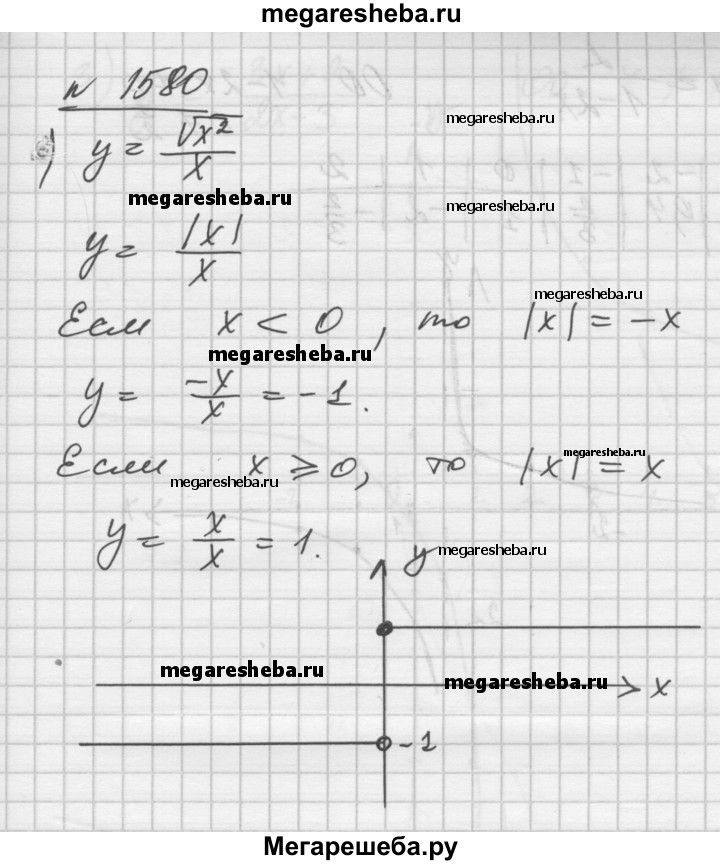 megaresheba.ru
n 1580
y = √x² / x
megaresheba.ru
megaresheba.ru
megaresheba.ru
y = |x| / x
megaresheba.ru
Если x < 0, то |x| = -x
megaresheba.ru
y = -x / x = -1.
megaresheba.ru
Если x ≥ 0, то |x| = x
megaresheba.ru
y = x / x = 1.
y
megaresheba.ru
megaresheba.ru
megaresheba.ru
x
-1
Мегарешеба.ру